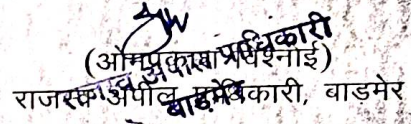 (ओमप्रकाश विश्नोई)
राजस्व अपील प्राधिकारी, बाडमेर
राजस्व अपील प्राधिकारी
बाड़मेर